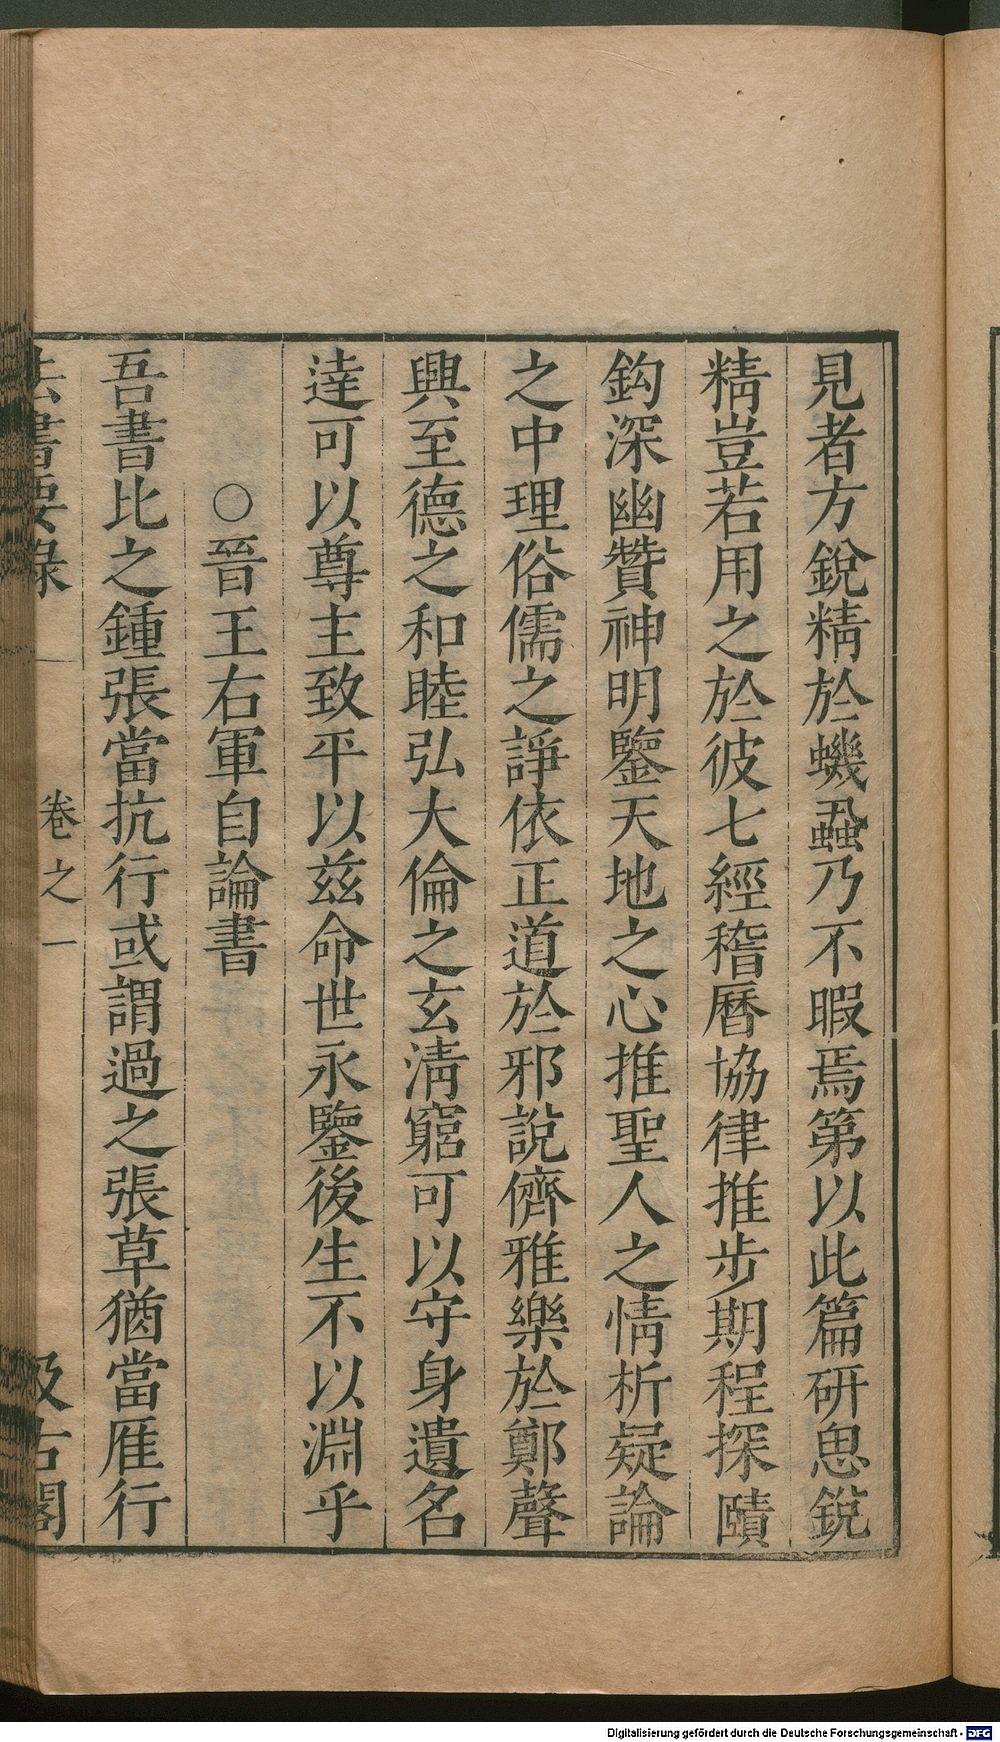 見者方銳精於蟣蝨乃不暇焉第以此篇研思銳
精豈若用之於彼七經稽曆協律推步期程探賾
鈎深幽贊神明鑒天地之心推聖人之情析疑論
之中理俗儒之諍依正道於邪説儕雅樂於鄭聲
興至德之和睦弘大倫之玄清窮可以守身遺名
達可以尊主致平以兹命世永鑒後生不以淵乎
○晉王右軍自論書
吾書比之鍾張當抗行或謂過之張草猶當雁行
法書要錄 卷之一 汲古閣
Digitalisierung gefördert durch die Deutsche Forschungsgemeinschaft - DFG